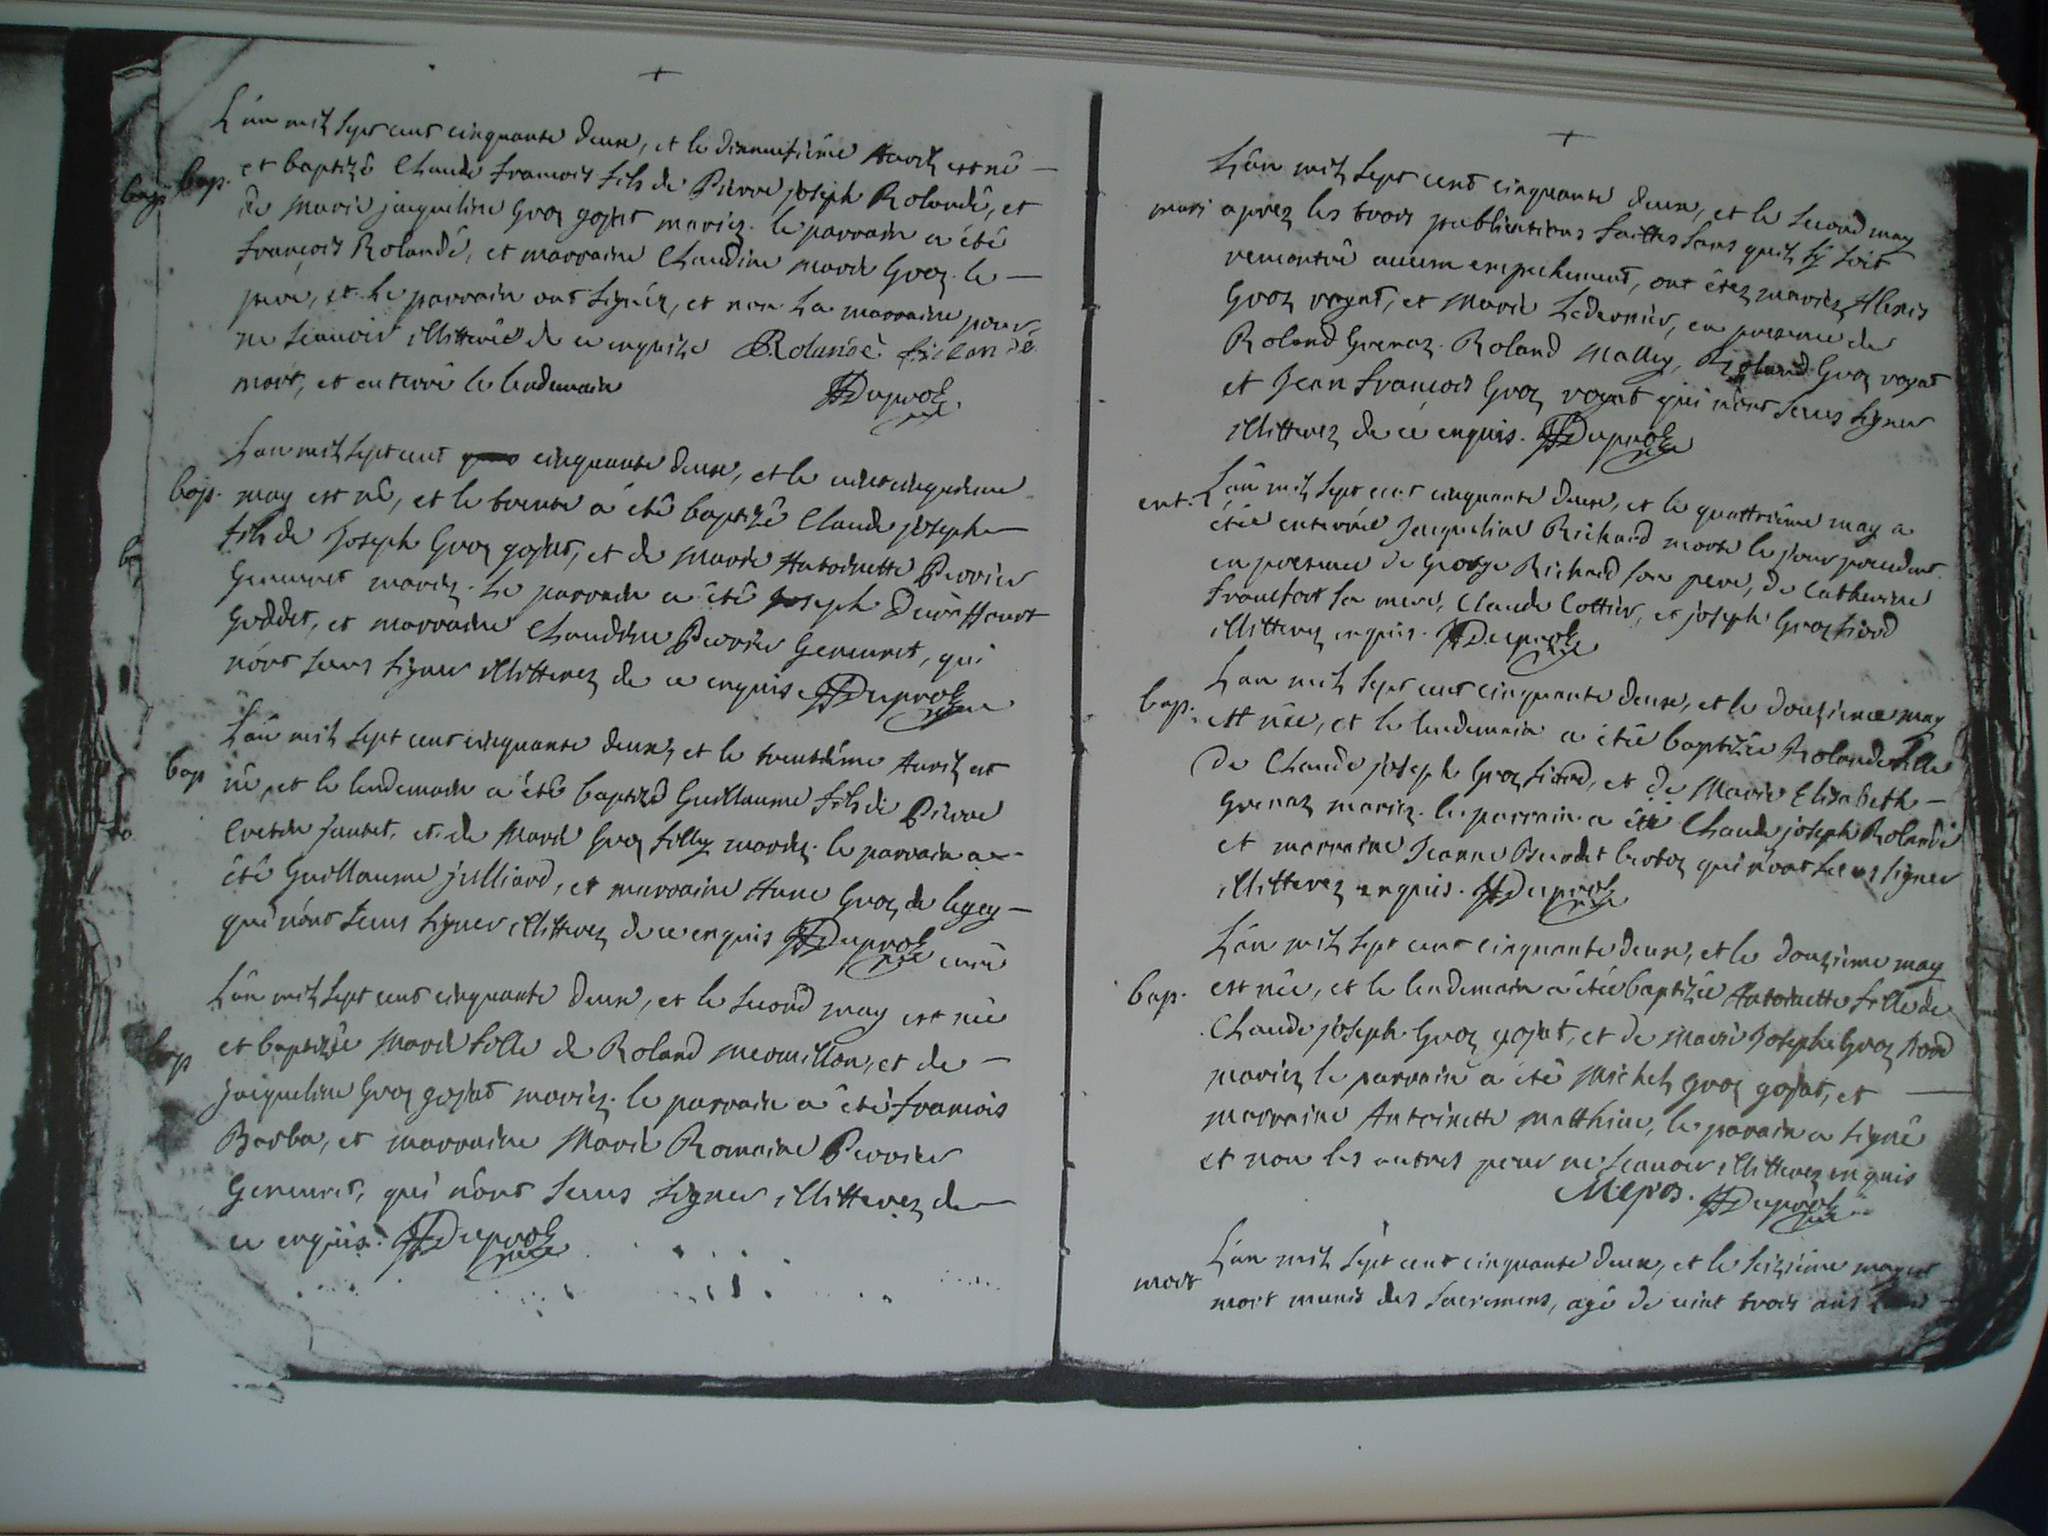 L'an mil sept cent cinquante deux, et le dixneufième Avril est né
bap. et baptizé Claude francois fils de Pierre joseph Rolandé, et
de Marie jacqueline Groz gojat mariez. le parrain a été
françois Rolandé, et marraine Claudine marie Groz. le
pere, et le parrain ont signéz, et non la marraine pour
ne scauoir illitterée de ce enquise Rolandé
mort, et enterré le lendemain Duproz
L'an mil sept cent cinquante deux, et le
bap. may est né, et le trente a été baptizé Claude joseph
fils de Joseph Groz gojat, et de Marie Antoinette Perrier
Geneuret mariez. Le parrain a été joseph
Goddet, et marraine Claudine Perrier Geneuret, qui
n'ont sceus signer illitterez de ce enquis Duproz
L'an mil sept cent cinquante deux, et le trentième Avril est
bap né, et le lendemain a été baptizé Guillaume fils de Pierre
et de Marie Groz filley mariez. le parrain a
été Guillaume julliard, et marraine Anne Groz de ligey
qui n'ont sceus signer illitterez de ce enquis Duproz curé
L'an mil sept cent cinquante deux, et le second may est née
bap et baptizée Marie fille de Roland mermillon, et de
jacqueline Groz gojat mariez. le parrain a été francois
Barba, et marraine Marie Romaine Perrier
Geneuret, qui n'ont sceus signer illitterez de
ce enquis. Duproz
L'an mil sept cent cinquante deux, et le second may
mari aprez les trois publications faittes sans quil s'y soit
rencontré aucun empechement, ont étez mariez Alexis
Groz royat, et Marie Ledernier, en presence de
Roland Grenaz. Roland Malley, Roland Groz royat
et Jean françois Groz royat qui n'ont sceus signer
illitterez de ce enquis. Duproz
ent. L'an mil sept cent cinquante deux, et le quattrième may a
étée enterrée Jacqueline Richard morte le jour precedent
en presence de George Richard son pere, de Catherine
francfort sa mere, Claude Cottier, et joseph Groz
illitterez enquis. Duproz
L'an mil sept cent cinquante deux, et le douzieme may
bap. est née, et le lendemain a étée baptizée Rolande fille
de Claude joseph Groz, et de Marie Elisabeth
Grenaz mariez. le parrain a été Claude joseph Rolandé
et marraine Jeanne qui n'ont sceus signer
illitterez enquis. Duproz
L'an mil sept cent cinquante deux, et le douzieme may
bap. est née, et le lendemain a étée baptizée Antoinette fille de
Claude joseph Groz gojat, et de Marie Josephe Groz
mariez le parrain a été Michel Groz gojat, et
marraine Antoinette matthieu, le parain a signé
et non les autres pour ne scauoir illitterez enquis
Duproz
L'an mil sept cent cinquante deux, et le seizième may est
mort mort munis des sacremens, agé de vint trois ans